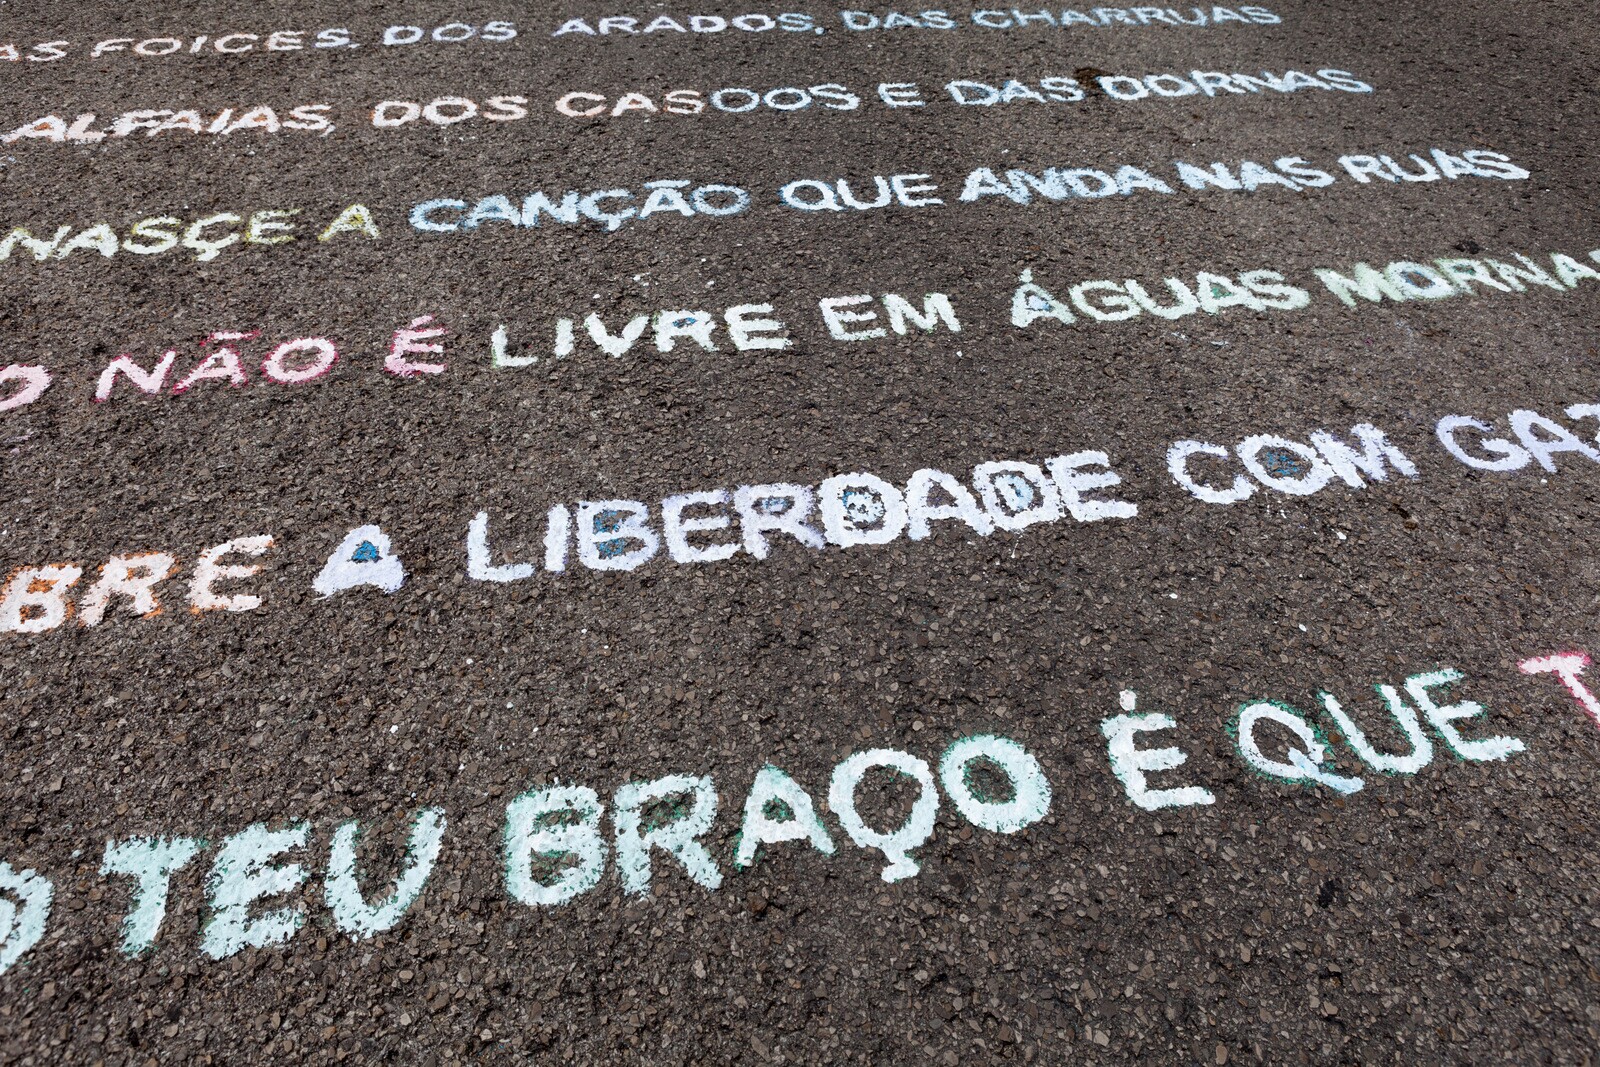 AS FOICES, DOS ARADOS, DAS CHARRUAS
ALFAIAS, DOS CASCOS E DAS DORNAS
NASÇE A CANÇÃO QUE ANDA NAS RUAS
O NÃO É LIVRE EM ÁGUAS MORNAS
BRE A LIBERDADE COM GAZ
O TEU BRAÇO É QUE T